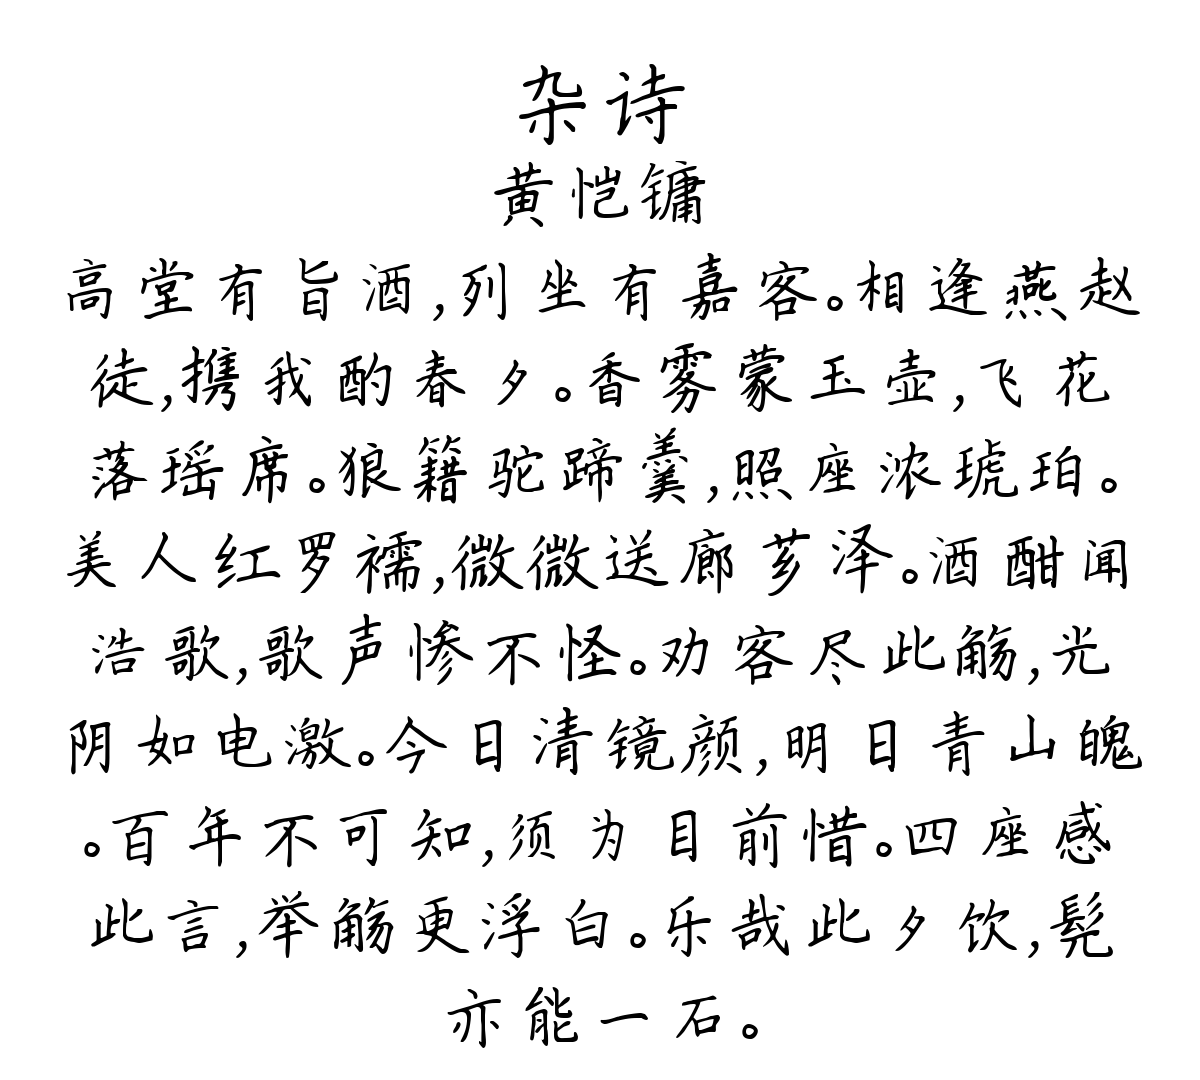 杂诗
黄恺镛
高堂有旨酒,列坐有嘉客。相逢燕赵
徒,携我酌春夕。香雾蒙玉壶,飞花
落瑶席。狼籍驼蹄羹,照座浓琥珀。
美人红罗襦,微微送廊芗泽。酒酣闻
浩歌,歌声惨不怪。劝客尽此觞,光
阴如电激。今日清镜颜,明日青山魄
。百年不可知,须为目前惜。四座感
此言,举觞更浮白。乐哉此夕饮,髡
亦能一石。